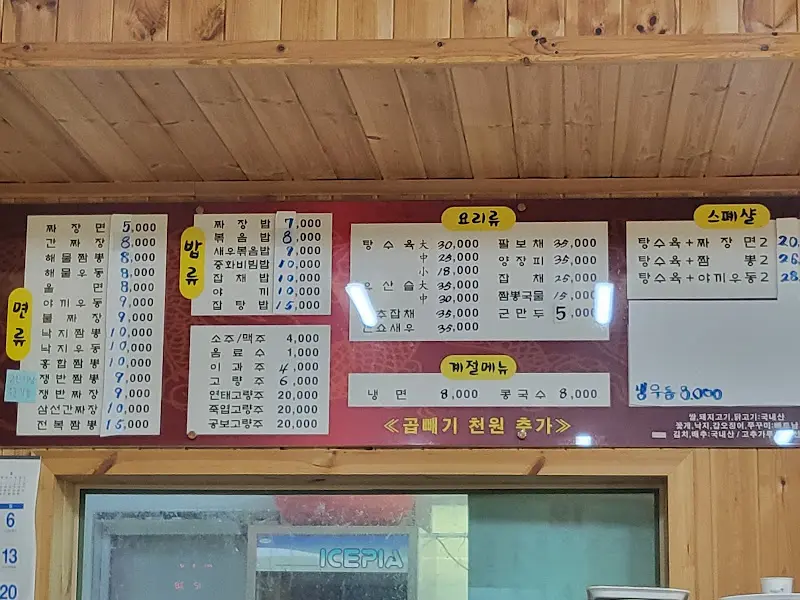 면류
짜장면 5,000
간짜장 8,000
해물짬뽕 8,000
해물우동 8,000
울면 8,000
야끼우동 9,000
물짜장 9,000
낙지짬뽕 10,000
낙지우동 10,000
홍합짬뽕 10,000
쟁반짬뽕 9,000
쟁반짜장 9,000
삼선간짜장 10,000
전복짬뽕 15,000
밥류
짜장밥 7,000
볶음밥 8,000
새우볶음밥 9,000
중화비빔밥 10,000
잡채밥 10,000
야끼 10,000
잡탕밥 15,000
소주/맥주 4,000
음료수 1,000
이과주 4,000
고량주 6,000
연태고량주 20,000
죽엽고량주 20,000
공보고량주 20,000
요리류
탕수육 大 30,000
中 23,000
小 18,000
유산슬 大 35,000
中 30,000
고추잡채 35,000
깐쇼새우 35,000
팔보채 35,000
양장피 35,000
잡채 25,000
짬뽕국물 15,000
군만두 5,000
계절메뉴
냉면 8,000 콩국수 8,000
≪곱빼기 천원 추가≫
스페샬
탕수육+짜장면2 20
탕수육+짬뽕2 26
탕수육+야끼우동2 28
냉우동 8,000
쌀,돼지고기,닭고기:국내산
꽃게,낙지,갑오징어,쭈꾸미:베트남
김치,배추:국내산 / 고추가루
6
13
20
ICEPIA